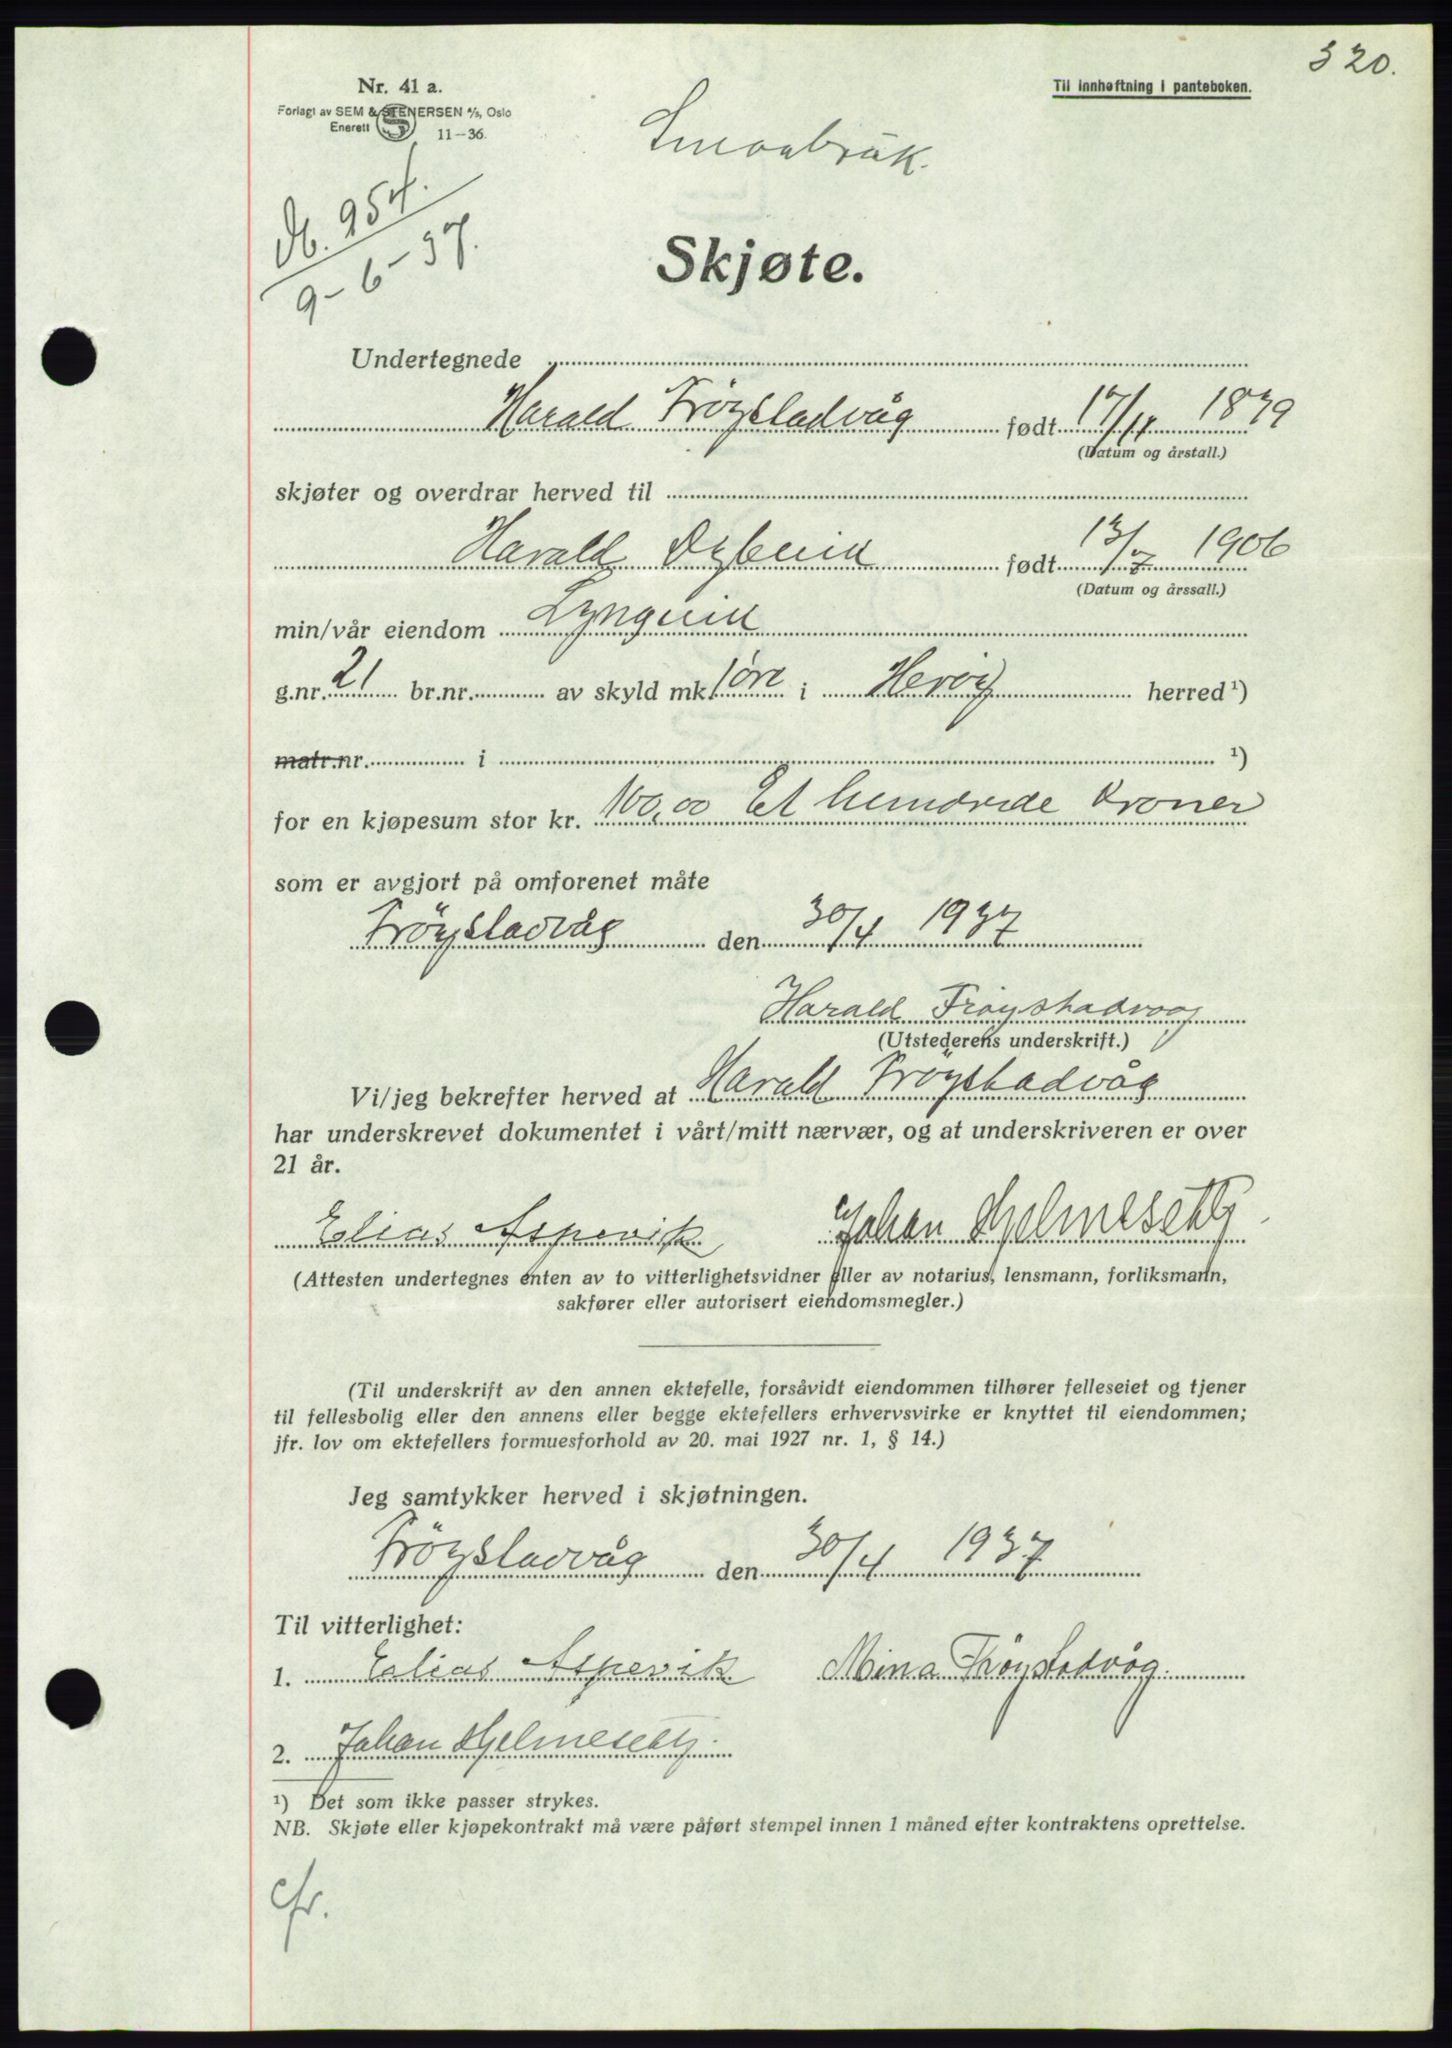 320.
Nr. 41 a.
Til innheftning i panteboken.
Forlagt av SEM & STENERSEN A/S, Oslo
Enerett 11–36.
Smaabruk.
Db. 954.
9-6-37.
Skjøte.
Undertegnede
Harald Frøystadvåg født 17/11 1879
(Datum og årstall.)
skjøter og overdrar herved til
Harald Dybvik født 13/7 1906
(Datum og årssall.)
min/vår eiendom Lyngvik
g.nr. 21 br.nr. av skyld mk. 1 øre i Herøy herred ¹)
matr.nr. i ¹)
for en kjøpesum stor kr. 100,00 Et hundrede Kroner
som er avgjort på omforenet måte
Frøystadvåg den 30/4 1937
Harald Frøystadvog
(Utstederens underskrift.)
Vi/jeg bekrefter herved at Harald Frøystadvåg
har underskrevet dokumentet i vårt/mitt nærvær, og at underskriveren er over
21 år.
Elias Aspevik Johan Hjelmeseth
(Attesten undertegnes enten av to vitterlighetsvidner eller av notarius, lensmann, forliksmann,
sakfører eller autorisert eiendomsmegler.)
(Til underskrift av den annen ektefelle, forsåvidt eiendommen tilhører felleseiet og tjener
til fellesbolig eller den annens eller begge ektefellers erhvervsvirke er knyttet til eiendommen;
jfr. lov om ektefellers formuesforhold av 20. mai 1927 nr. 1, § 14.)
Jeg samtykker herved i skjøtningen.
Frøystadvåg den 30/4 1937
Til vitterlighet:
1. Elias Aspevik Mina Frøystadvåg.
2. Johan Hjelmeseth.
¹) Det som ikke passer strykes.
NB. Skjøte eller kjøpekontrakt må være påført stempel innen 1 måned efter kontraktens oprettelse.